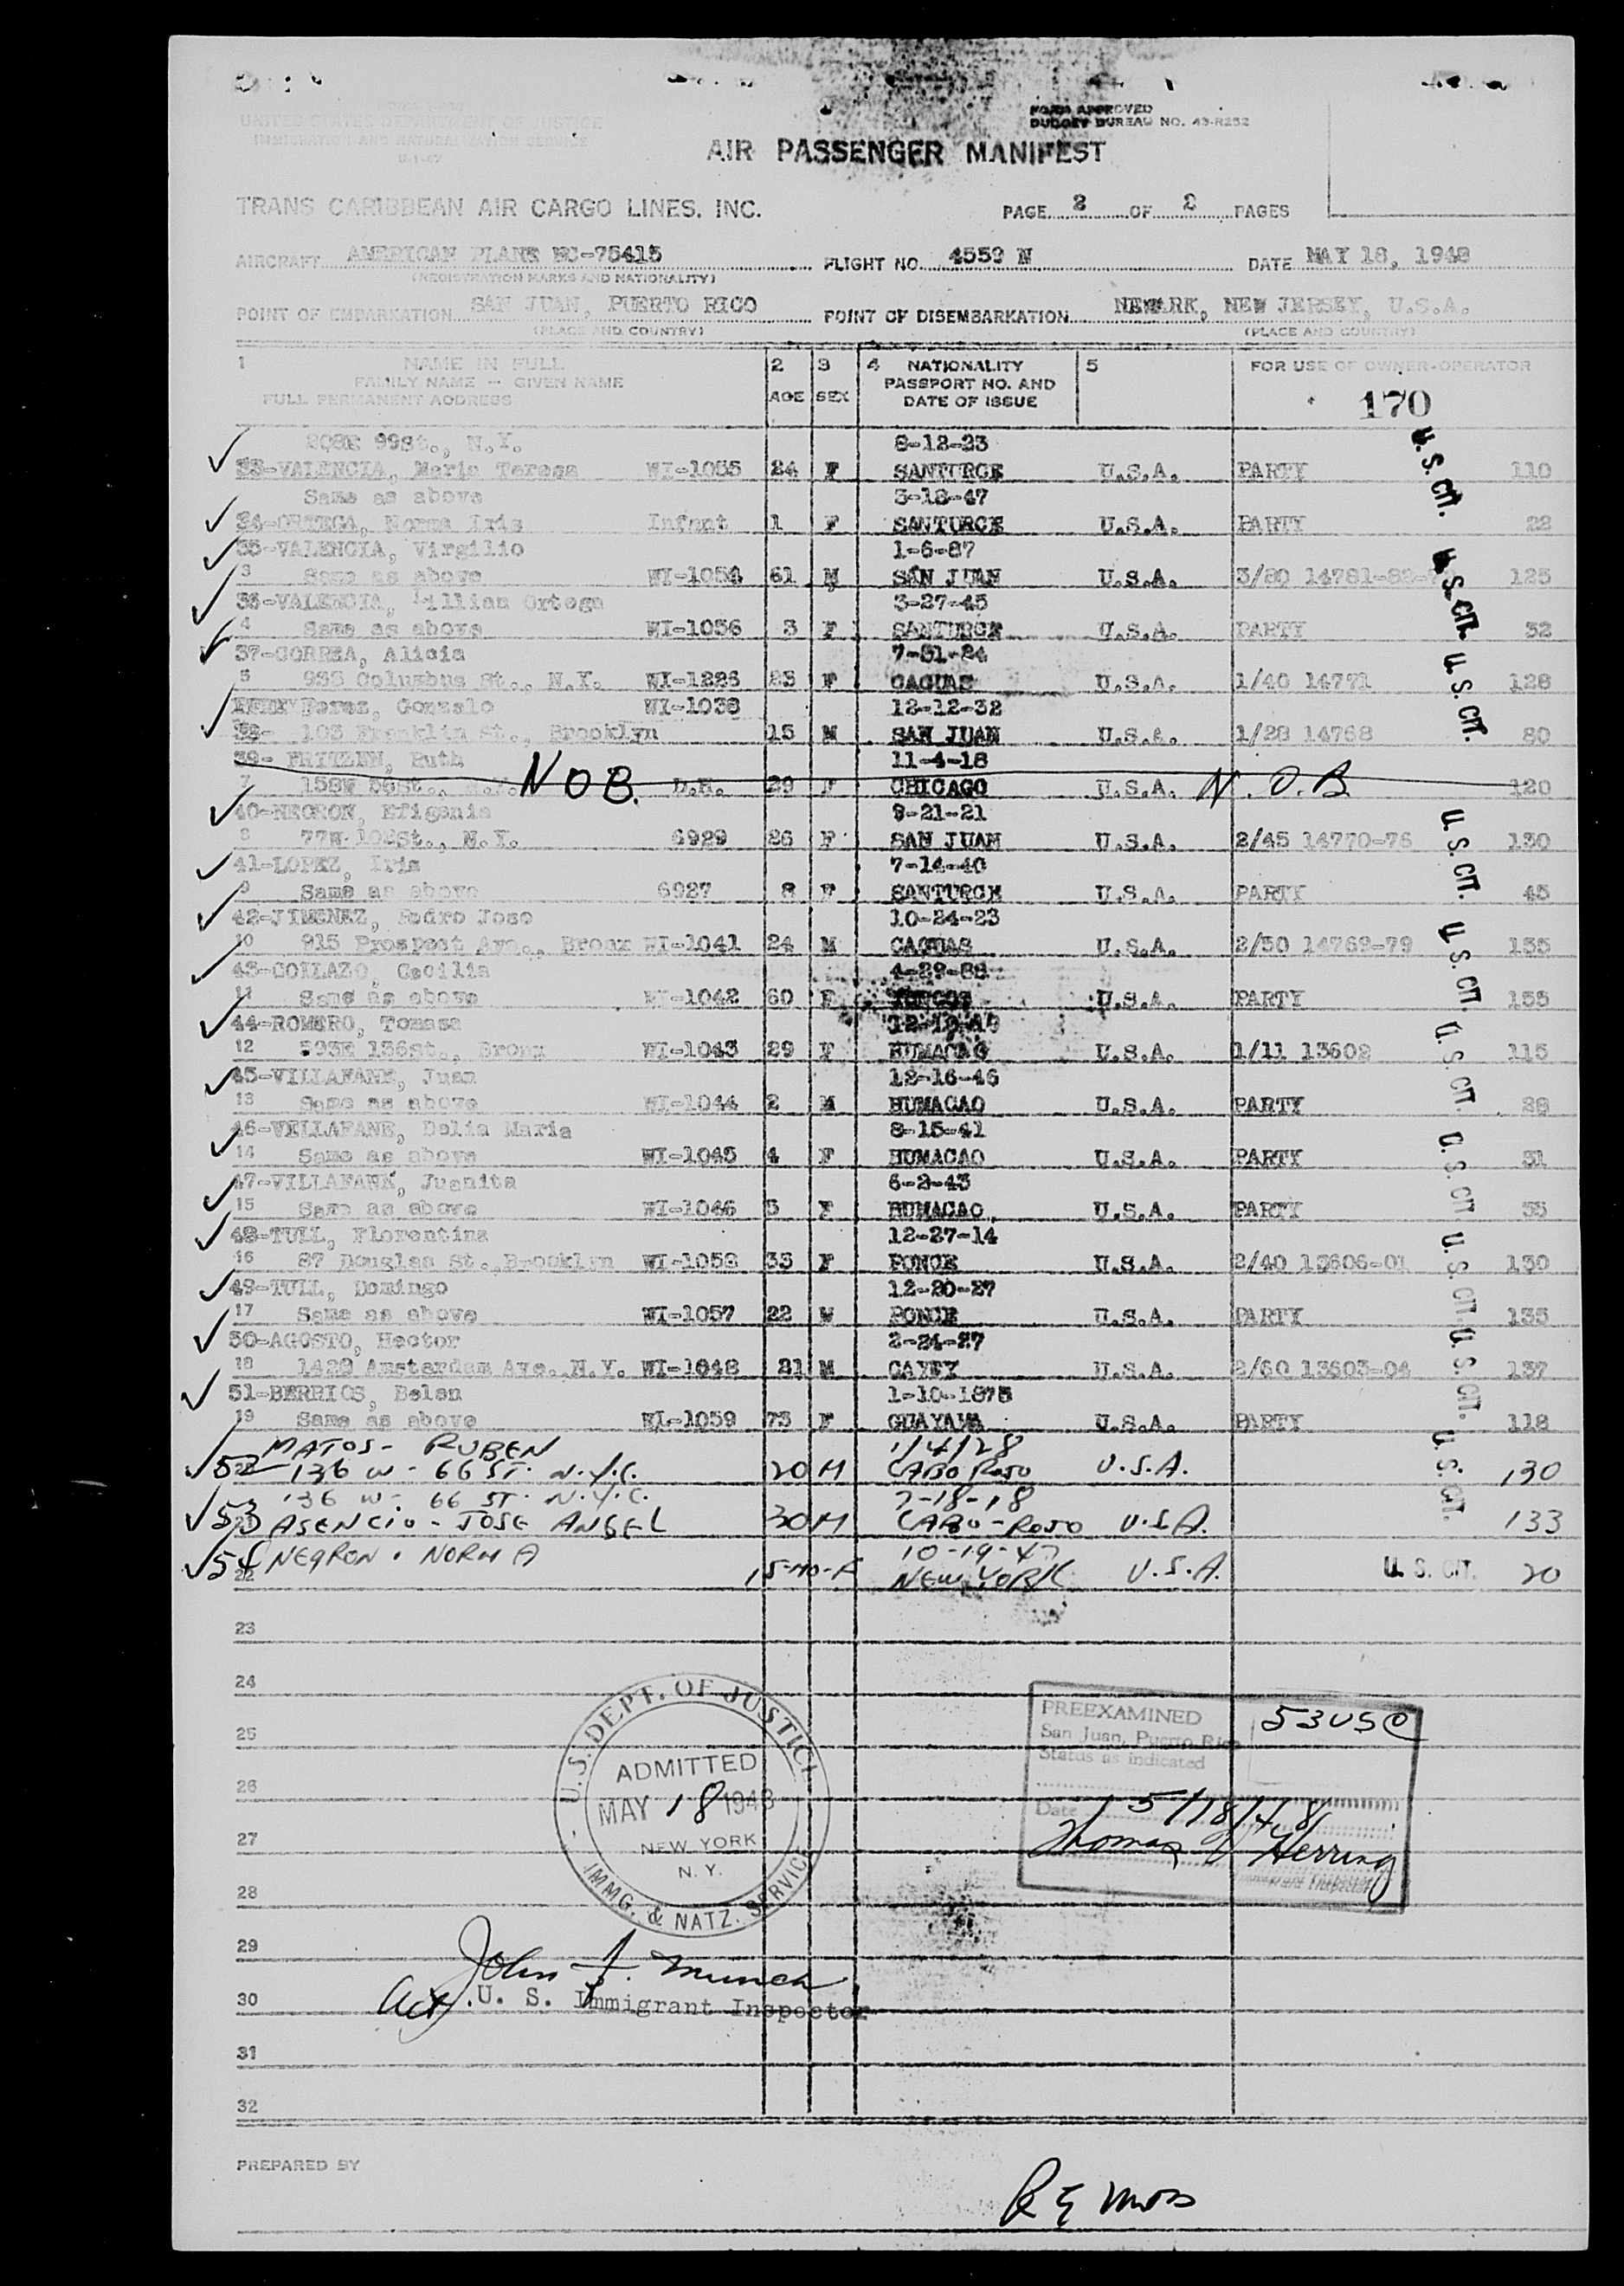 FORM APPROVED
BUDGET BUREAU NO. 43-R252
UNITED STATES DEPARTMENT OF JUSTICE
IMMIGRATION AND NATURALIZATION SERVICE
AIR PASSENGER MANIFEST
TRANS CARIBBEAN AIR CARGO LINES, INC.
PAGE 2 OF 2 PAGES
AIRCRAFT AMERICAN PLANE NC-75415 FLIGHT NO. 4559 N DATE MAY 18, 1948
(REGISTRATION MARKS AND NATIONALITY)
POINT OF EMBARKATION SAN JUAN, PUERTO RICO POINT OF DISEMBARKATION NEWARK, NEW JERSEY, U.S.A.
(PLACE AND COUNTRY) (PLACE AND COUNTRY)
1 NAME IN FULL 2 3 4 NATIONALITY 5 FOR USE OF OWNER-OPERATOR
FAMILY NAME — GIVEN NAME PASSPORT NO. AND
FULL PERMANENT ADDRESS AGE SEX DATE OF ISSUE 170
208E 99St., N.Y. 8-12-23
33-VALENCIA, Maria Teresa WI-1055 24 F SANTURCE U.S.A. PARTY 110
Same as above 3-18-47 U.S. CIT.
34-ORTEGA, Norma Iris Infant 1 F SANTURCE U.S.A. PARTY 22
35-VALENCIA, Virgilio 1-6-87
3 Same as above WI-1054 61 M SAN JUAN U.S.A. 3/80 14781-82- 125
36-VALENCIA, Lillian Ortega 3-27-45 U.S. CIT.
4 Same as above WI-1056 3 F SANTURCE U.S.A. PARTY 32
37-CORREA, Alicia 7-31-24
5 935 Columbus St., N.Y. WI-1226 23 F CAGUAS U.S.A. 1/40 14771 128
Perez, Gonzalo WI-1038 12-12-32 U.S. CIT.
38- 103 Franklin St., Brooklyn 15 M SAN JUAN U.S.A. 1/28 14768 80
39- FRITZEN, Ruth 11-4-18
7 158W St., N.Y. NOB. D.H. 29 F CHICAGO U.S.A. N.O.B. 120
40-NEGRON, Efigenia 9-21-21
8 77W 102St., N.Y. 6929 26 F SAN JUAN U.S.A. 2/45 14770-76 130
41-LOPEZ, Iris 7-14-40 U.S. CIT.
9 Same as above 6927 8 F SANTURCE U.S.A. PARTY 45
42-JIMENEZ, Pedro Jose 10-24-23
10 915 Prospect Ave., Bronx WI-1041 24 M CAGUAS U.S.A. 2/50 14769-79 155
43-COLLAZO, Cecilia 4-29-88 U.S. CIT.
11 Same as above WI-1042 60 F U.S.A. PARTY 155
44-ROMERO, Tomasa
12 593E 136St., Bronx WI-1043 29 F HUMACAO U.S.A. 1/11 13602 115
45-VILLAFANE, Juan 12-16-46 U.S. CIT.
13 Same as above WI-1044 2 M HUMACAO U.S.A. PARTY 28
46-VILLAFANE, Delia Maria 8-15-41
14 Same as above WI-1045 4 F HUMACAO U.S.A. PARTY 31
47-VILLAFANE, Juanita 6-2-43 U.S. CIT.
15 Same as above WI-1046 5 F HUMACAO U.S.A. PARTY 35
48-TULL, Florentina 12-27-14
16 87 Douglas St., Brooklyn WI-1058 33 F PONCE U.S.A. 2/40 13606-01 130
49-TULL, Domingo 12-20-27 U.S. CIT.
17 Same as above WI-1057 22 M PONCE U.S.A. PARTY 135
50-AGOSTO, Hector 2-24-27
18 1428 Amsterdam Ave. N.Y. WI-1048 21 M CAYEY U.S.A. 2/60 13603-04 137
51-BERRIOS, Belen 1-10-1875 U.S. CIT.
19 Same as above WI-1059 73 F GUAYAMA U.S.A. PARTY 118
MATOS- RUBEN 1/4/28
52 136 W- 66 ST. N.Y.C. 20 M CABO ROJO U.S.A. 130
136 W- 66 ST. N.Y.C. 7-18-18 U.S. CIT.
53 ASENCIO - JOSE ANGEL 30 M CABO-ROJO U.S.A. 133
54 NEGRON. NORMA 10-19-47
22 5-MO-F NEW YORK U.S.A. U.S. CIT. 20
23
24
25
26
27
28
29
30
31
32
U.S. DEPT. OF JUSTICE
ADMITTED
MAY 18 1948
NEW YORK
N.Y.
IMMG. & NATZ. SERVICE
PREEXAMINED 53 USC
San Juan, Puerto Rico
Status as indicated
Date 5/18/48
Thomas J Herring
Immigrant Inspector
John J. Munch
Act. U. S. Immigrant Inspector
PREPARED BY